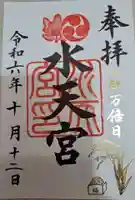 奉拝
万倍日
水天宮
令和六年十月十二日